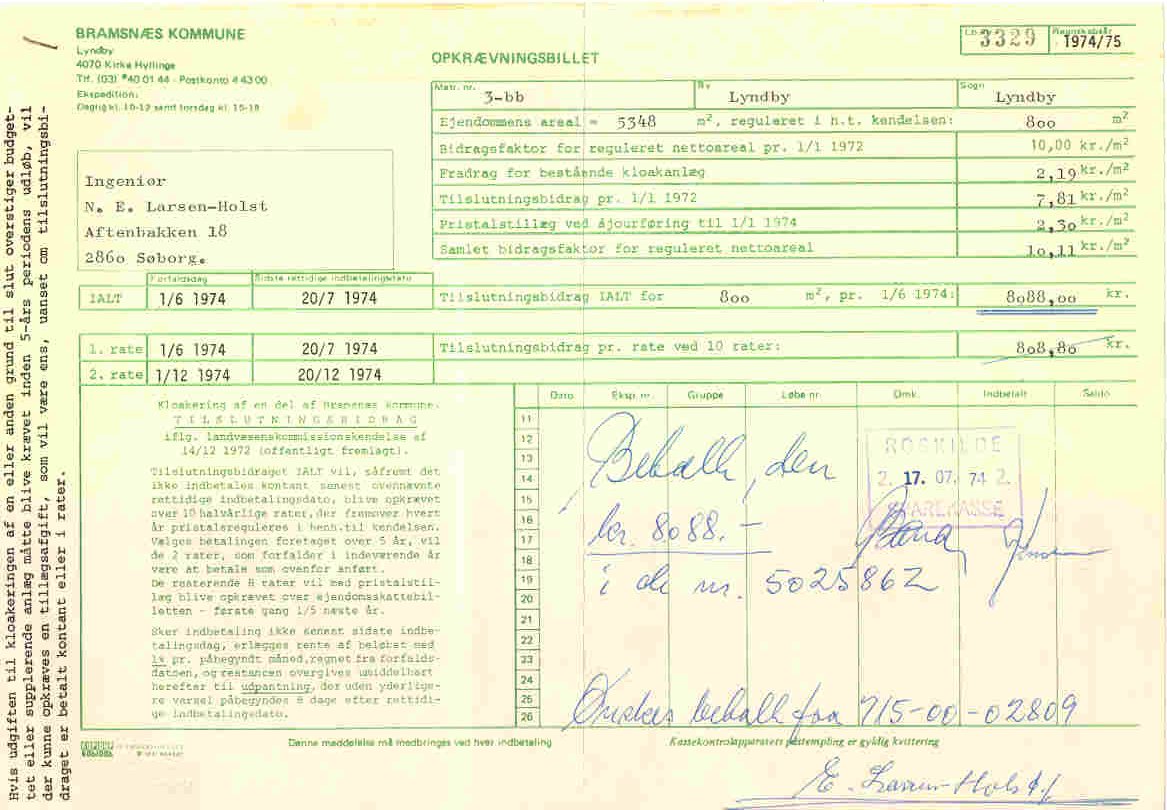 BRAMSNÆS KOMMUNE
Lyndby
4070 Kirke Hyllinge
Tlf. (03) *40 01 44 - Postkonto 4 43 00
Ekspedition:
Daglig kl. 10-12 samt torsdag kl. 15-18
OPKRÆVNINGSBILLET
3329
Regnskabsår
1974/75
Matr. nr.
3-bb
By
Lyndby
Sogn
Lyndby
Ejendommens areal = 5348 m², reguleret i h.t. kendelsen: 800 m²
Bidragsfaktor for reguleret nettoareal pr. 1/1 1972 10,00 kr./m²
Fradrag for bestående kloakanlæg 2,19 kr./m²
Tilslutningsbidrag pr. 1/1 1972 7,81 kr./m²
Pristalstillæg ved åjourføring til 1/1 1974 2,30 kr./m²
Samlet bidragsfaktor for reguleret nettoareal 10,11 kr./m²
Ingeniør
N. E. Larsen-Holst
Aftenbakken 18
2860 Søborg.
Forfaldsdag
Sidste rettidige indbetalingsdato
IALT 1/6 1974 20/7 1974 Tilslutningsbidrag IALT for 800 m², pr. 1/6 1974: 8088,00 kr.
1. rate 1/6 1974 20/7 1974 Tilslutningsbidrag pr. rate ved 10 rater: 808,80 kr.
2. rate 1/12 1974 20/12 1974
Dato Eksp. nr. Gruppe Løbe nr. Omk. Indbetalt Saldo
Kloakering af en del af Bramsnæs kommune.
TILSLUTNINGSBIDRAG
iflg. landvæsenskommissionskendelse af
14/12 1972 (offentligt fremlagt).
Tilslutningsbidraget IALT vil, såfremt det
ikke indbetales kontant senest ovennævnte
rettidige indbetalingsdato, blive opkrævet
over 10 halvårlige rater, der fremover hvert
år pristalsreguleres i henh. til kendelsen.
Vælges betalingen foretaget over 5 år, vil
de 2 rater, som forfalder i indeværende år
være at betale som ovenfor anført.
De resterende 8 rater vil med pristalstil-
læg blive opkrævet over ejendomsskattebil-
letten - første gang 1/5 næste år.
Sker indbetaling ikke senest sidste indbe-
talingsdag, erlægges rente af beløbet med
1% pr. påbegyndt måned, regnet fra forfalds-
datoen, og restancen overgives umiddelbart
herefter til udpantning, der uden yderlige-
re varsel påbegyndes 8 dage efter rettidi-
ge indbetalingsdato.
11
12
13
14
15
16
17
18
19
20
21
22
23
24
25
26
Betalt, den
kr. 8088.-
i ck nr. 5025862
ROSKILDE
2. 17. 07. 74 2.
SPAREKASSE
Ønskes betalt fra 915-00-02809
Denne meddelelse må medbringes ved hver indbetaling
Kassekontrolapparatets påstempling er gyldig kvittering
E. Larsen-Holst
Hvis udgiften til kloakeringen af en eller anden grund til slut overstiger budget-
tet eller supplerende anlæg måtte blive krævet inden 5-års periodens udløb, vil
der kunne opkræves en tillægsafgift, som vil være ens, uanset om tilslutningsbi-
draget er betalt kontant eller i rater.